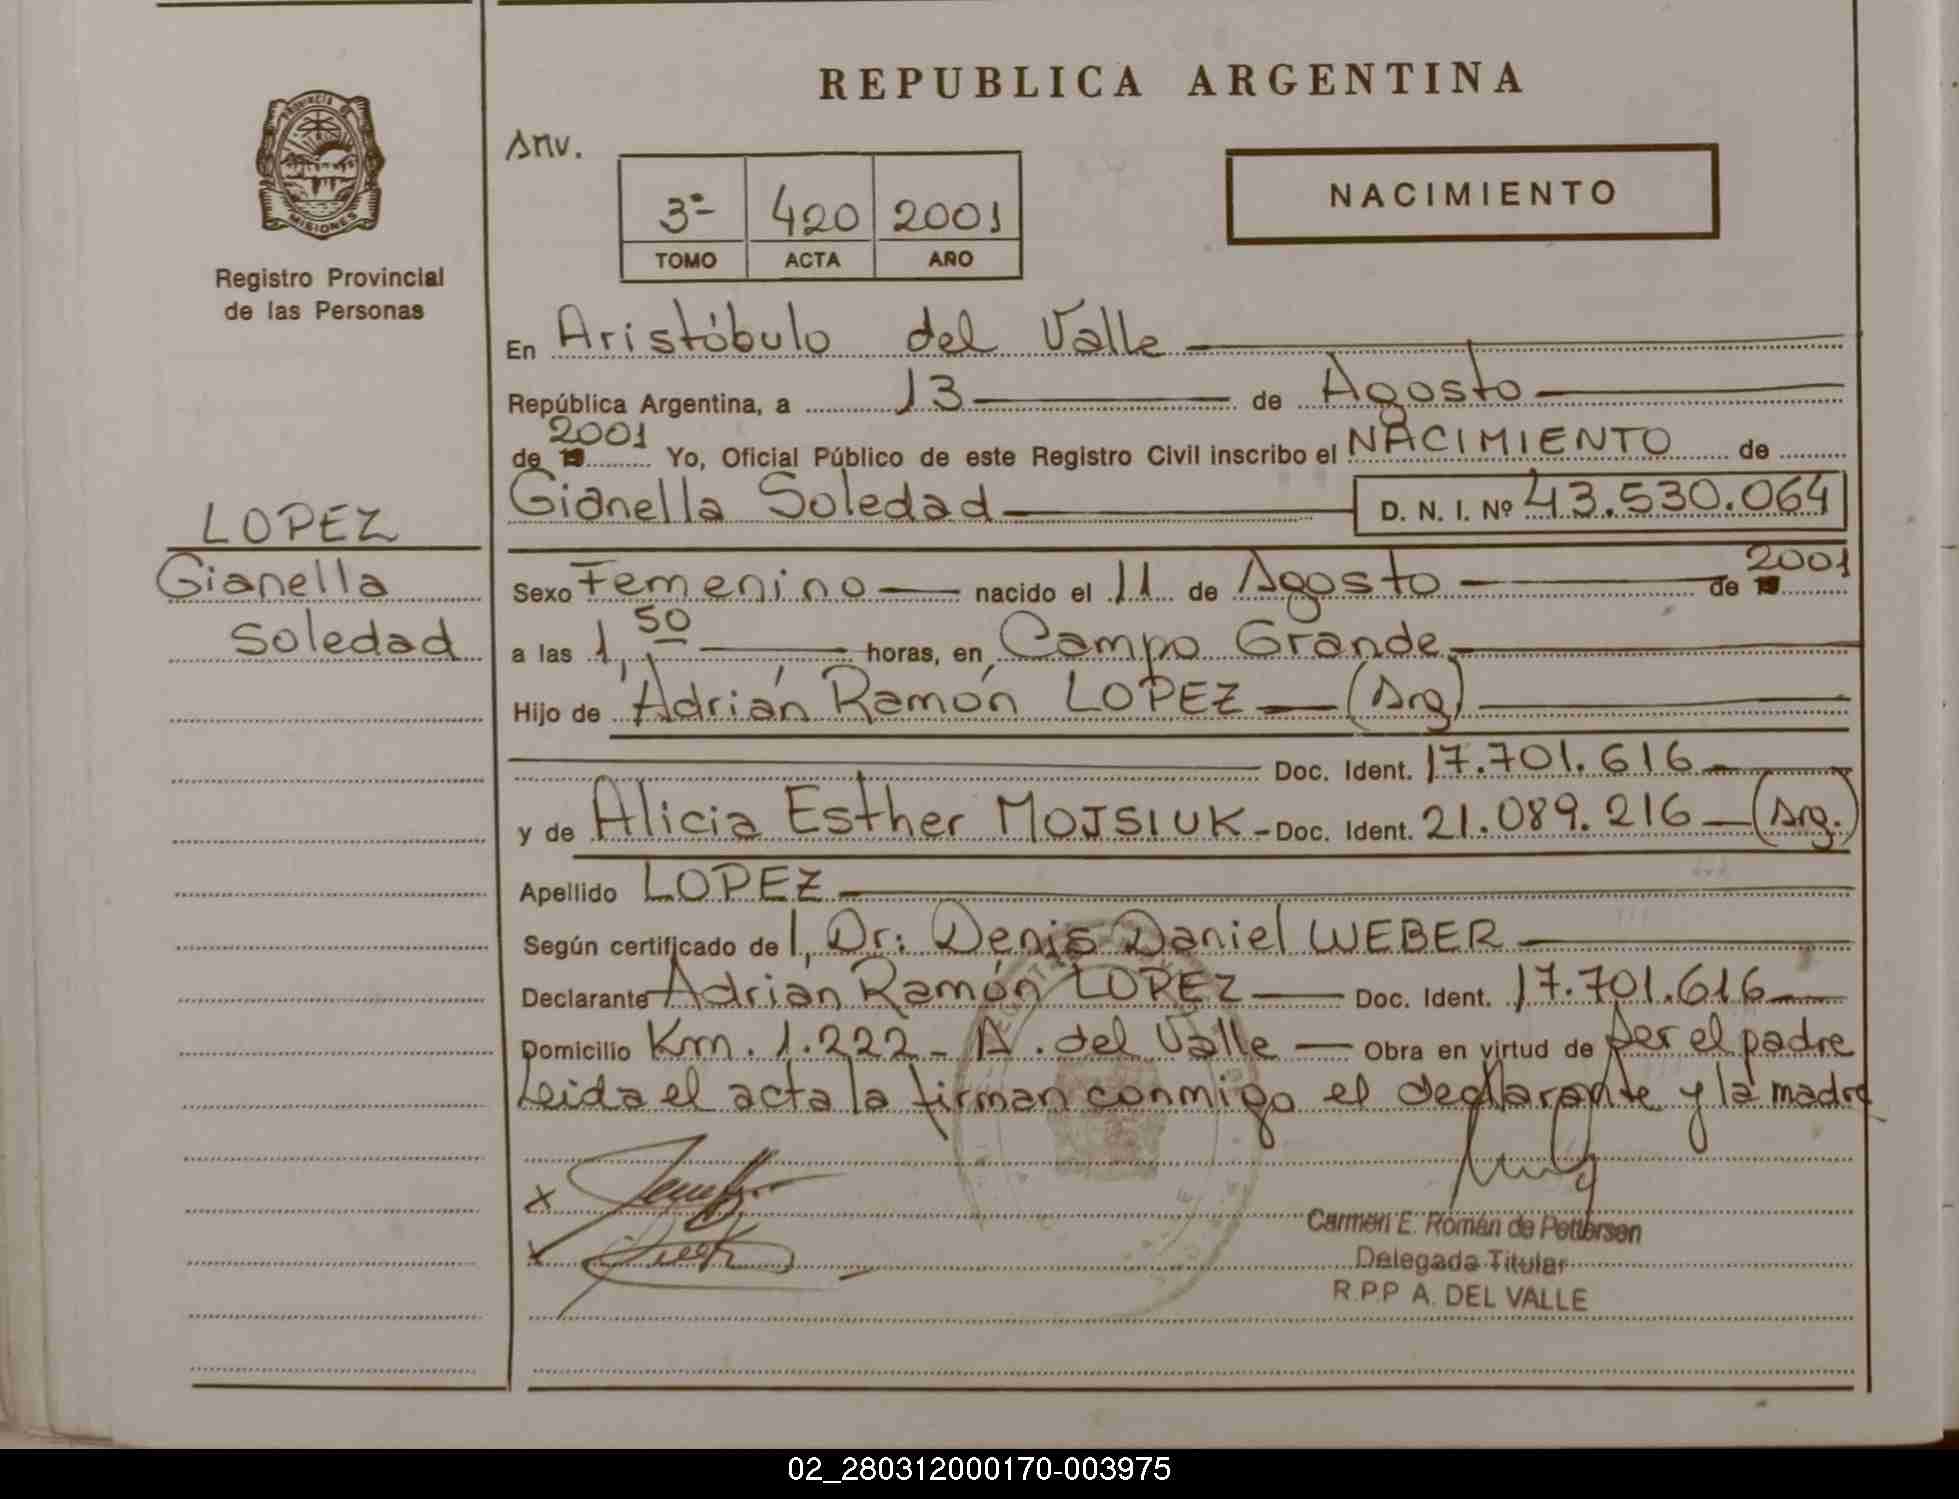 REPUBLICA ARGENTINA
Anv.
NACIMIENTO
3ª 420 2001
TOMO ACTA AÑO
PROVINCIA DE
MISIONES
Registro Provincial
de las Personas
LOPEZ
Gianella
Soledad
En Aristóbulo del Valle
República Argentina, a 13 de Agosto
de 2001 Yo, Oficial Público de este Registro Civil inscribo el NACIMIENTO de
Gianella Soledad D. N. I. Nº 43.530.064
Sexo Femenino nacido el 11 de Agosto de 2001
a las 1,50 horas, en Campo Grande
Hijo de Adrián Ramón LOPEZ (Arg)
Doc. Ident. 17.701.616
y de Alicia Esther MOJSIUK - Doc. Ident. 21.089.216 (Arg.)
Apellido LOPEZ
Según certificado de l, Dr: Denis Daniel WEBER
Declarante Adrian Ramón LOPEZ Doc. Ident. 17.701.616
Domicilio Km. 1.222 - A. del Valle Obra en virtud de ser el padre
Leida el acta la firman conmigo el declarante y la madre
x
x
Carmen E. Román de Pettersen
Delegada Titular
R.P.P A. DEL VALLE
02_280312000170-003975